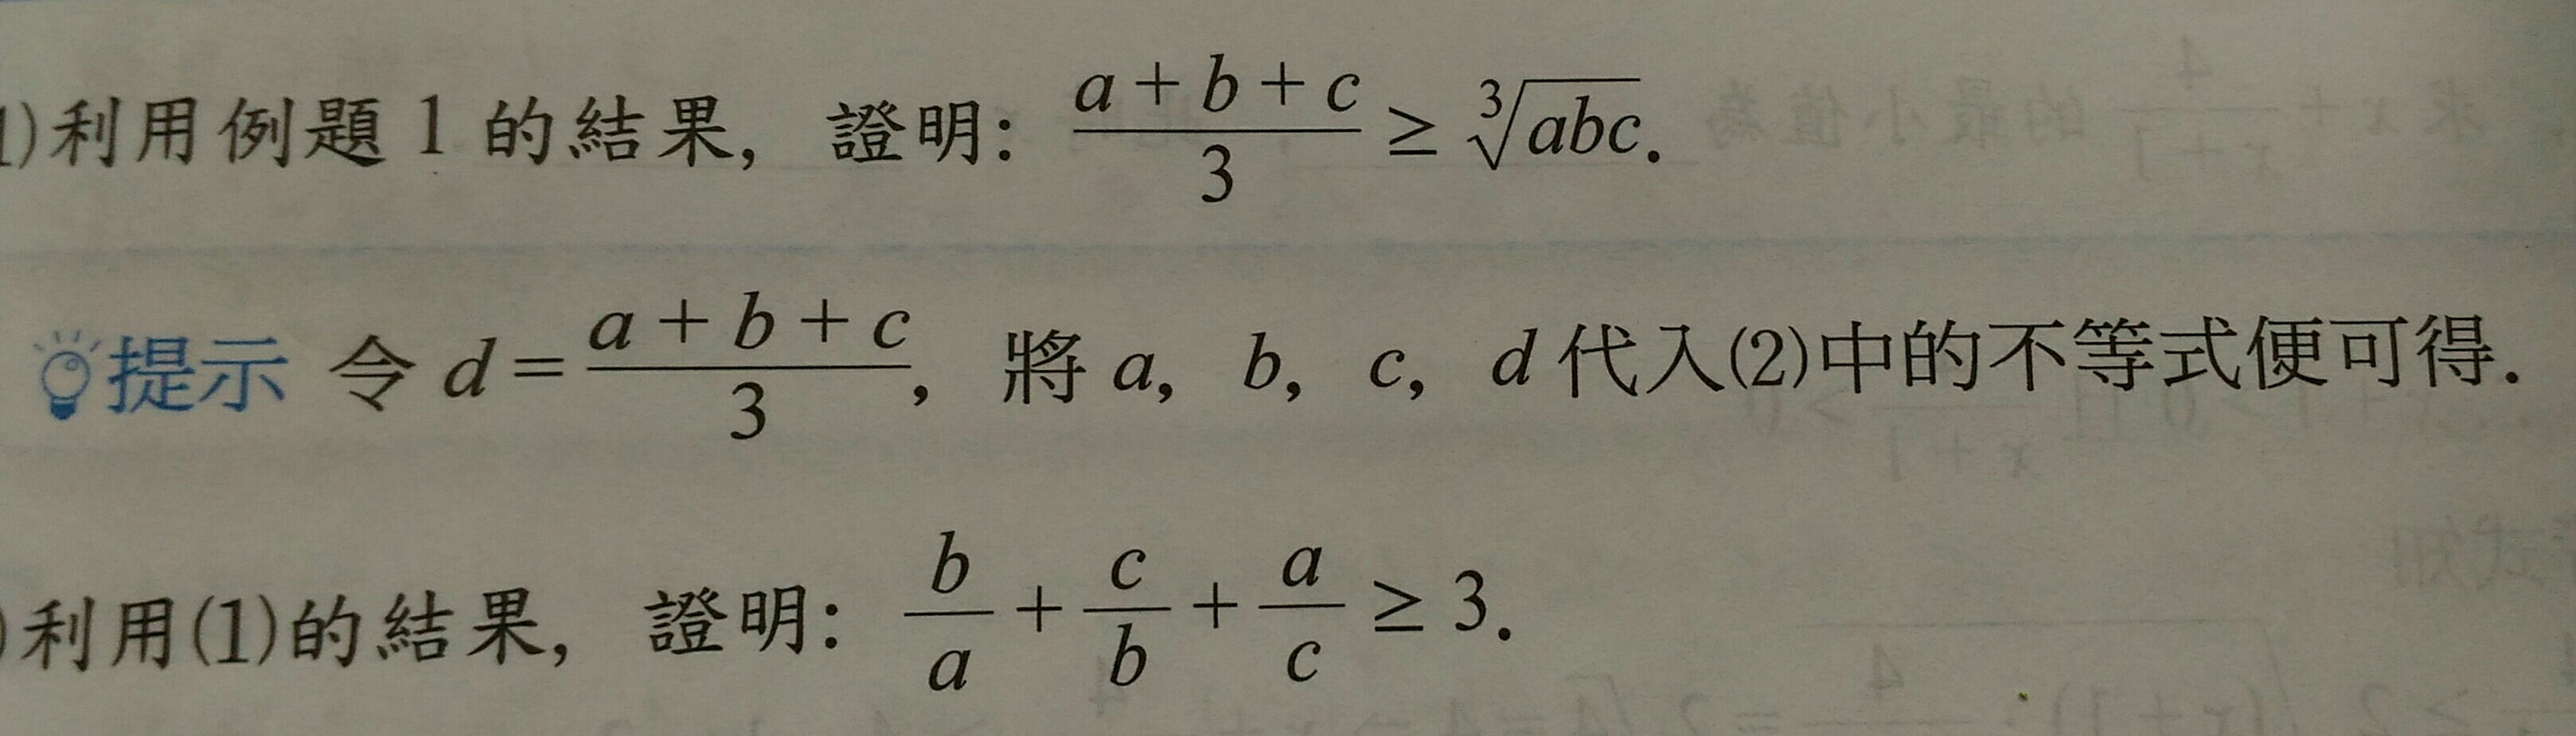 1)利用例題 1 的結果，證明：(a + b + c)/3 ≥ ∛(abc).
提示 令 d = (a + b + c)/3，將 a，b，c，d 代入(2)中的不等式便可得.
)利用(1)的結果，證明：b/a + c/b + a/c ≥ 3.